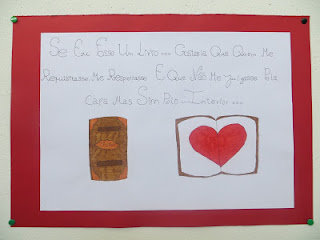 Se Eu Fosse Um Livro... Gostaria Que Quem Me
Requisitasse Me Respeitasse E Que Não Me Julgasse Pla
Capa Mas Sim Pelo... Interior...